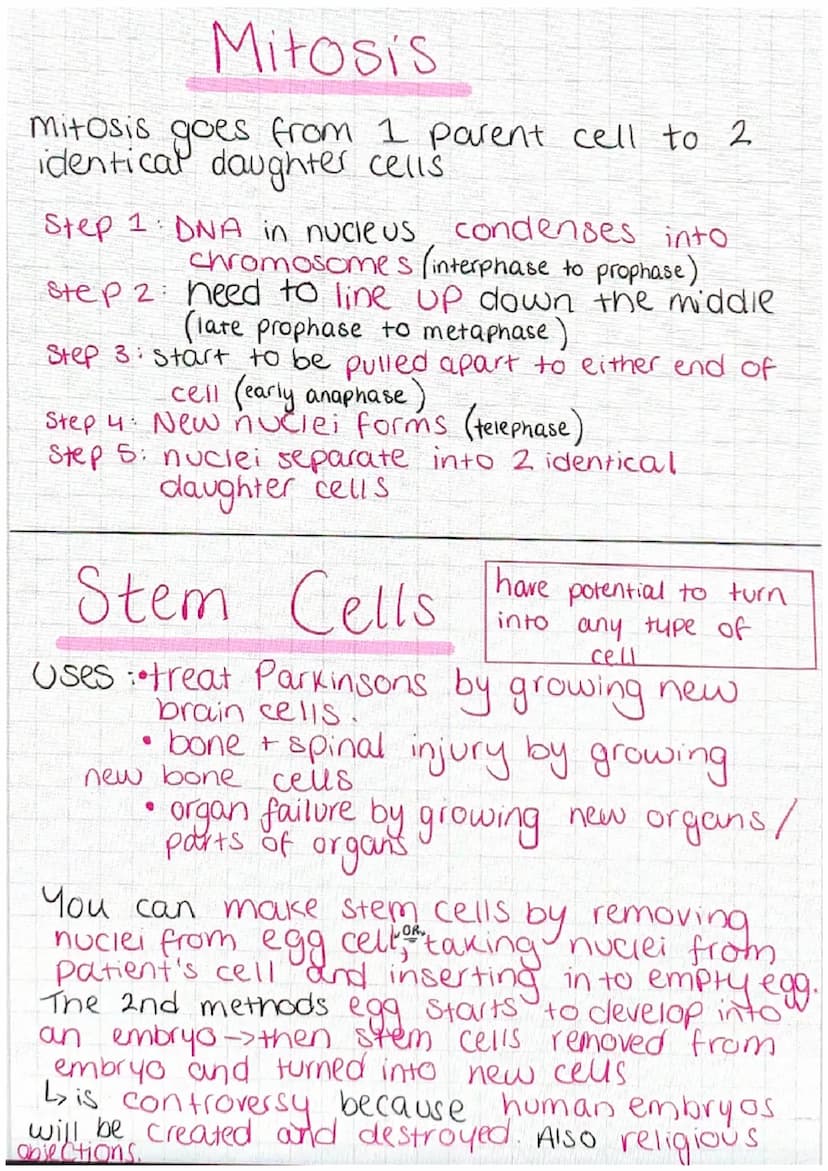 Mitosis
mitosis goes from 1 parent cell to 2
identical daughter cells
Step 1: DNA in nucleus condenses into
chromosomes (interphase to prophase)
Step 2: need to line up down the middle
(late prophase to metaphase)
Step 3: start to be pulled apart to either end of
cell (early anaphase)
Step 4: New nuclei forms (telephase)
Step 5: nuclei separate into 2 identical
daughter cells
Stem Cells
have potential to turn
into any type of
cell
Uses: • treat Parkinsons by growing new
brain cells.
• bone + spinal injury by growing
new bone cells
• organ failure by growing new organs/
parts of organs
You can make stem cells by removing
nuclei from egg cell, OR, taking nuclei from
patient's cell and inserting in to empty egg.
The 2nd methods egg starts to develop into
an embryo -> then stem cells removed from
embryo and turned into new cells
↳ is controversy because human embryos
will be created and destroyed. Also religious
objections.